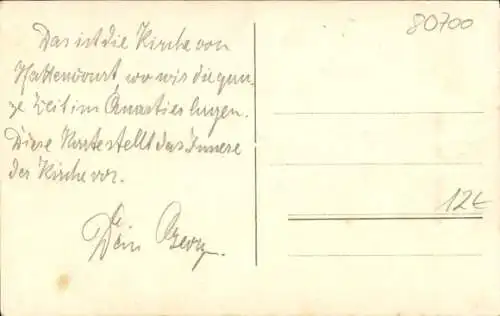 Das ist die Kirche von
Pfaffenwort, wo wir die gan-
ze Zeit im Quartier lagen.
Diese Karte stellt das Innere
der Kirche vor.
Dein Georg.
80700
12€